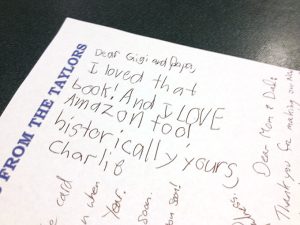 FROM THE TAYLORS
Dear Gigi and Papa,
I loved that
book! And I LOVE
Amazon too!
historically yours,
Charlie
card
when
year.
soon.
Dear Mom &
Thank you for making our